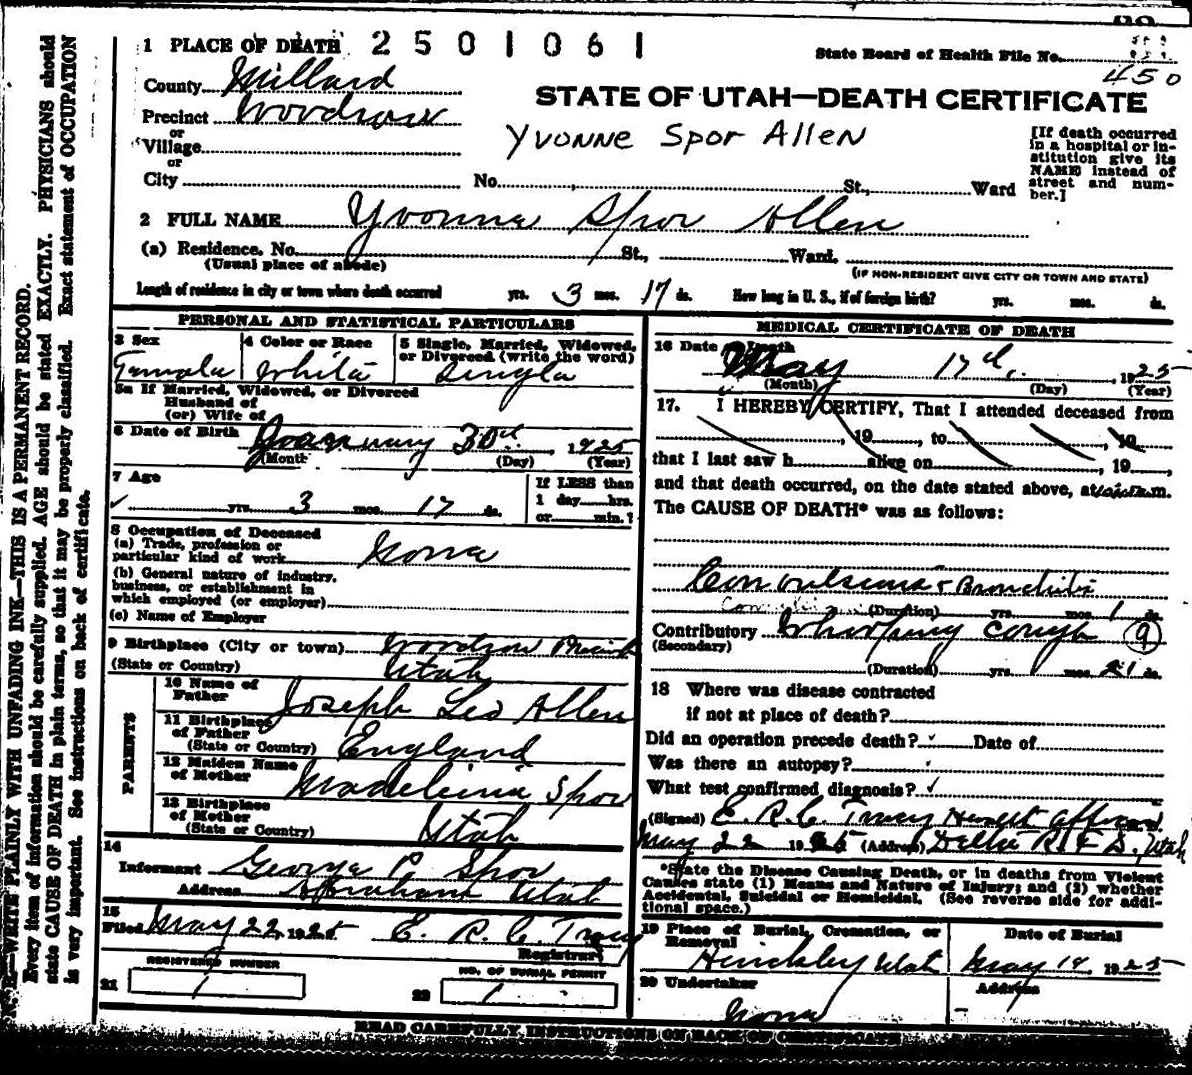 1 PLACE OF DEATH 2501061
State Board of Health File No.
450
County Millard
STATE OF UTAH—DEATH CERTIFICATE
Precinct Woodrow
or
Yvonne Spor Allen
Village
or
City No. St., Ward
[If death occurred
in a hospital or in-
stitution give its
NAME instead of
street and num-
ber.]
2 FULL NAME Yvonne Spor Allen
(a) Residence. No. St., Ward.
(Usual place of abode)
(IF NON-RESIDENT GIVE CITY OR TOWN AND STATE)
Length of residence in city or town where death occurred yrs. 3 mos. 17 ds. How long in U. S., if of foreign birth? yrs. mos. ds.
PERSONAL AND STATISTICAL PARTICULARS
3 Sex
Female
4 Color or Race
White
5 Single, Married, Widowed,
or Divorced (write the word)
Single
5a If Married, Widowed, or Divorced
Husband of
(or) Wife of
6 Date of Birth January 30th, 1925
(Month (Day) (Year)
7 Age
yrs. 3 mos. 17 ds.
If LESS than
1 day hrs.
or min.?
8 Occupation of Deceased
(a) Trade, profession or
particular kind of work None
(b) General nature of industry,
business, or establishment in
which employed (or employer)
(c) Name of Employer
9 Birthplace (City or town) Woodrow Precinct
(State or Country) Utah
PARENTS
10 Name of
Father Joseph Leo Allen
11 Birthplace
of Father
(State or Country) England
12 Maiden Name
of Mother Madeline Spor
13 Birthplace
of Mother
(State or Country) Utah
14
Informant George P. Spor
Address Abraham Utah
15
Filed May 22, 1925 E. R. C. Tracy
Registrar
REGISTERED NUMBER
21 1
NO. OF BURIAL PERMIT
22 1
MEDICAL CERTIFICATE OF DEATH
16 Date of Death
May 17th, 1925
(Month) (Day) (Year)
17. I HEREBY CERTIFY, That I attended deceased from
, 19 , to , 19
that I last saw h alive on , 19 ,
and that death occurred, on the date stated above, at m.
The CAUSE OF DEATH* was as follows:
Convulsions & Bronchitis
(Duration) yrs. mos. 1 ds.
Contributory Whooping cough 9
(Secondary)
(Duration) yrs. mos. 21 ds.
18 Where was disease contracted
if not at place of death?
Did an operation precede death? Date of
Was there an autopsy?
What test confirmed diagnosis? ✓
(Signed) E. R. C. Tracy Health Officer
May 22 1925 (Address) Delta R.F.D., Utah
*State the Disease Causing Death, or in deaths from Violent
Causes state (1) Means and Nature of Injury; and (2) whether
Accidental, Suicidal or Homicidal. (See reverse side for addi-
tional space.)
19 Place of Burial, Cremation, or
Removal
Hinckley Utah
Date of Burial
May 19, 1925
20 Undertaker
None
Address
READ CAREFULLY, INSTRUCTIONS ON BACK OF CERTIFICATE
N. B.—WRITE PLAINLY WITH UNFADING INK—THIS IS A PERMANENT RECORD.
Every item of information should be carefully supplied. AGE should be stated EXACTLY. PHYSICIANS should
state CAUSE OF DEATH in plain terms, so that it may be properly classified. Exact statement of OCCUPATION
is very important. See instructions on back of certificate.